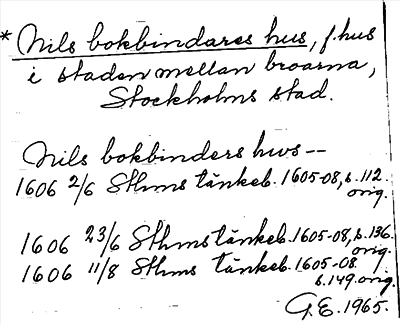 * Nils bokbindares hus, f. hus
i staden mellan broarna,
Stockholms stad.
Nils bokbinders hws--
1606 2/6 Sthms tänkeb. 1605-08, s. 112.
orig.
1606 23/6 Sthms tänkeb. 1605-08, s. 136.
orig.
1606 11/8 Sthms tänkeb. 1605-08
s. 149. orig.
G.E. 1965.